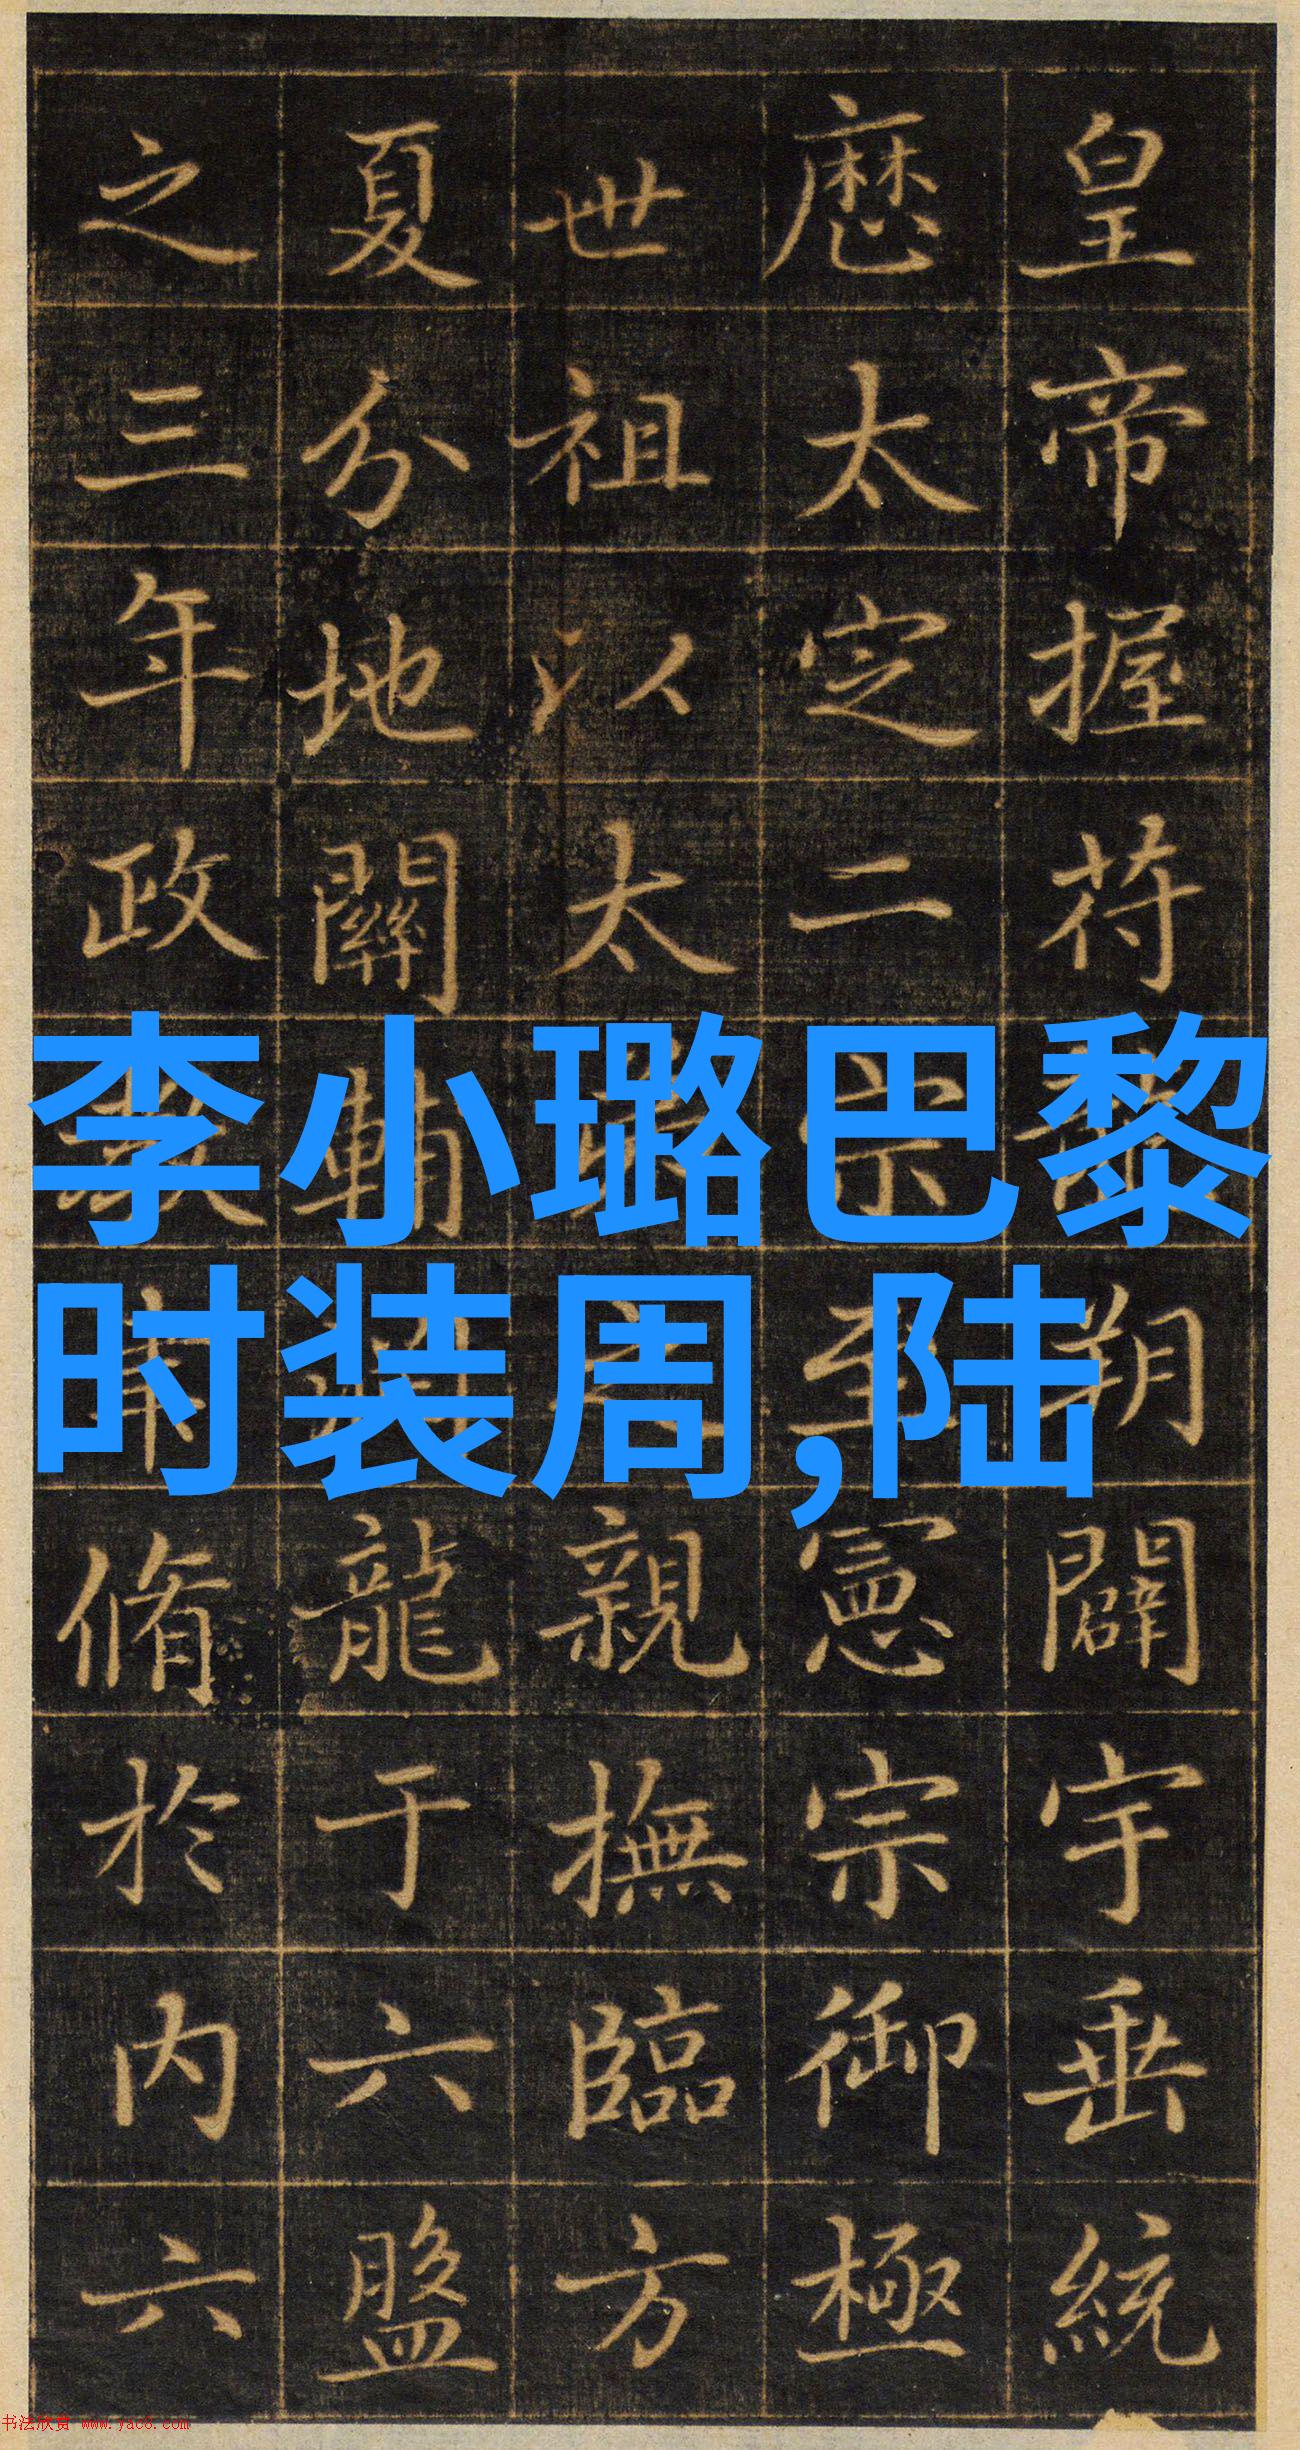 皇帝握苻朔闢宇垂統
厯太定二宗至憲宗御極
世祖以太之親撫臨方
夏分地關輔龍于六盤
之三年政教脩於内六
李小璐巴黎
时装周,陆
书法欣赏 www.yac8.com